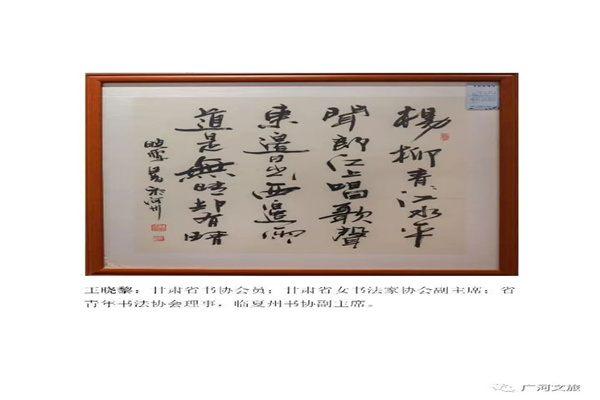 楊柳青々江水平
聞郎江上唱歌聲
東邊日出西邊雨
道是無晴却有晴
王晓黎：甘肃省书协会员；甘肃省女书法家协会副主席；省
青年书法协会理事，临夏州书协副主席。
广河文旅